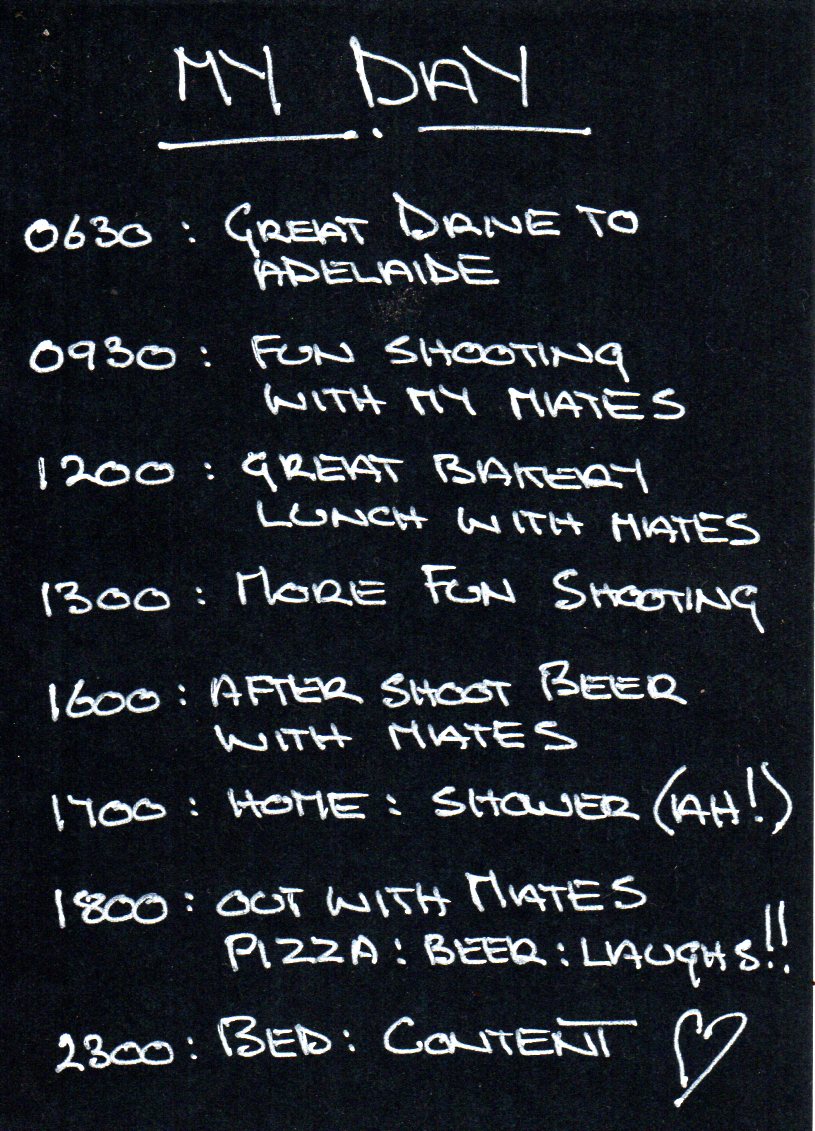 MY DAY
0630 : GREAT DRIVE TO
ADELAIDE
0930 : FUN SHOOTING
WITH MY MATES
1200 : GREAT BAKERY
LUNCH WITH MATES
1300 : MORE FUN SHOOTING
1600 : AFTER SHOOT BEER
WITH MATES
1700 : HOME : SHOWER (AH!)
1800 : OUT WITH MATES
PIZZA : BEER : LAUGHS!!
2300 : BED : CONTENT